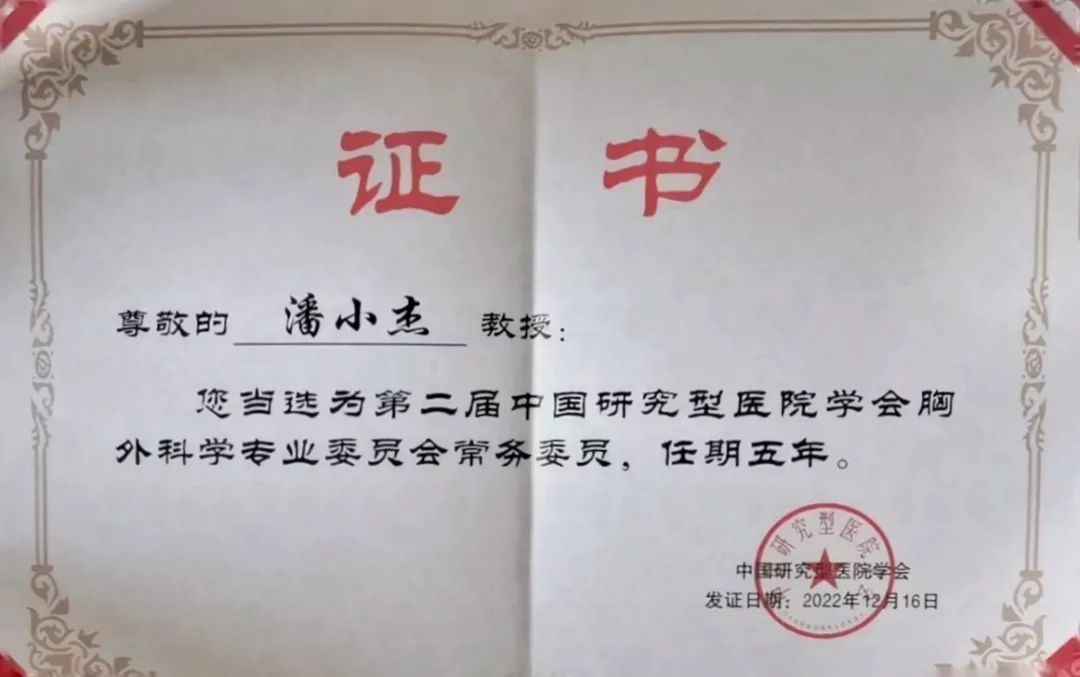 证 书
尊敬的 潘小杰 教授：
您当选为第二届中国研究型医院学会胸
外科学专业委员会常务委员，任期五年。
研究型医院
中国研究型医院学会
发证日期：2022年12月16日